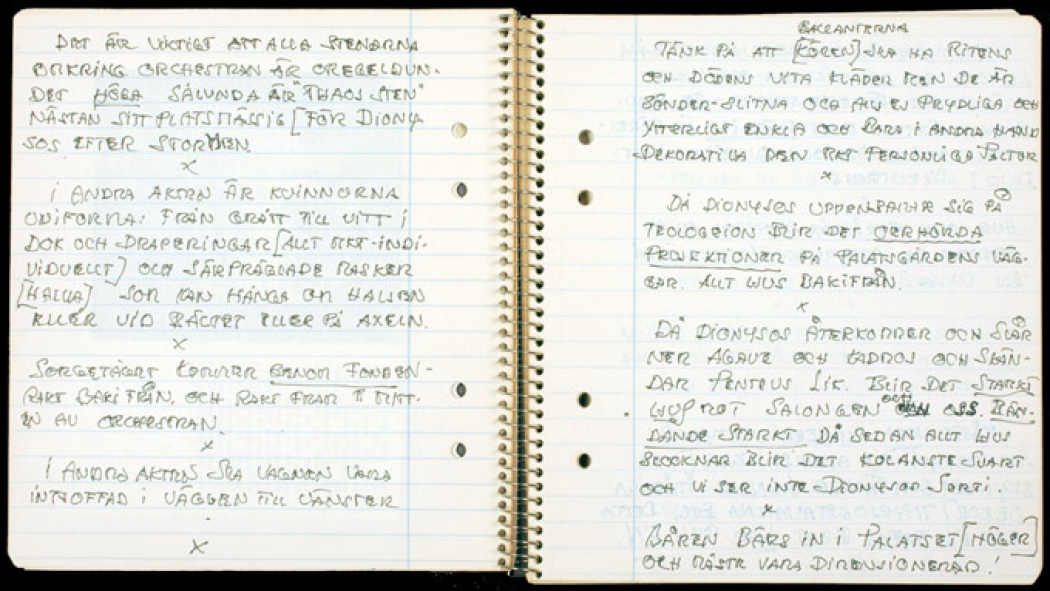 DET ÄR VIKTIGT ATT ALLA STENARNA
OMKRING ORCHESTRAN ÄR OREGELBUN-
DET HÖGA SÅLUNDA ÄR "THAOS STEN"
NÄSTAN SITTPLATSMÄSSIG [FÖR DIONY
SOS EFTER STORMEN.
X
I ANDRA AKTEN ÄR KVINNORNA
UNIFORMA: FRÅN GRÅTT TILL VITT I
DOK OCH DRAPERINGAR [ALLT MKT-INDI-
VIDUELLT] OCH SÄRPRÄGLADE MASKER
[HALVA] SOM KAN HÄNGA OM HALSEN
ELLER VID BÄLTET ELLER PÅ AXELN.
X
SORGETÅGET KOMMER GENOM FONDEN-
RAKT BAKIFRÅN. OCH RAKT FRAM TI MITT-
EN AV ORCHESTRAN.
X
I ANDRA AKTEN SKA VAGNEN VARA
INTOFFAD I VÄGGEN TILL VÄNSTER
X
BACCANTERNA
TÄNK PÅ ATT [KÖREN] SKA HA RITENS
OCH DÖDENS VITA KLÄDER MEN DE ÄR
SÖNDER-SLITNA OCH PRYDLIGA OCH
YTTERLIGT ENKLA OCH BARA I ANDRA HAND
DEKORATIVA DEN MKT PERSONLIGA FAKTOR
X
DÅ DIONYSOS UPPENBARAR SIG PÅ
TEOLOGEION BLIR DET OERHÖRDA
PROJEKTIONER PÅ PALATSGÅRDENS VÄG-
GAR. ALLT LJUS BAKIFRÅN.
X
DÅ DIONYSOS ÅTERKOMMER OCH SLÅR
NER AGAUE OCH KADMOS OCH SKÄN-
DAR PENTEUS LIK. BLIR DET STARKT
LJUS MOT SALONGEN OCH OSS. BLÄN-
DANDE STARKT. DÅ SEDAN ALLT LJUS
SLOCKNAR BLIR DET KOLANSTE SVART
OCH VI SER INTE DIONYSOS SORTI.
X
BÅREN BÄRS IN I PALATSET [HÖGER]
OCH MÅSTE VARA DIMENSIONERAD!